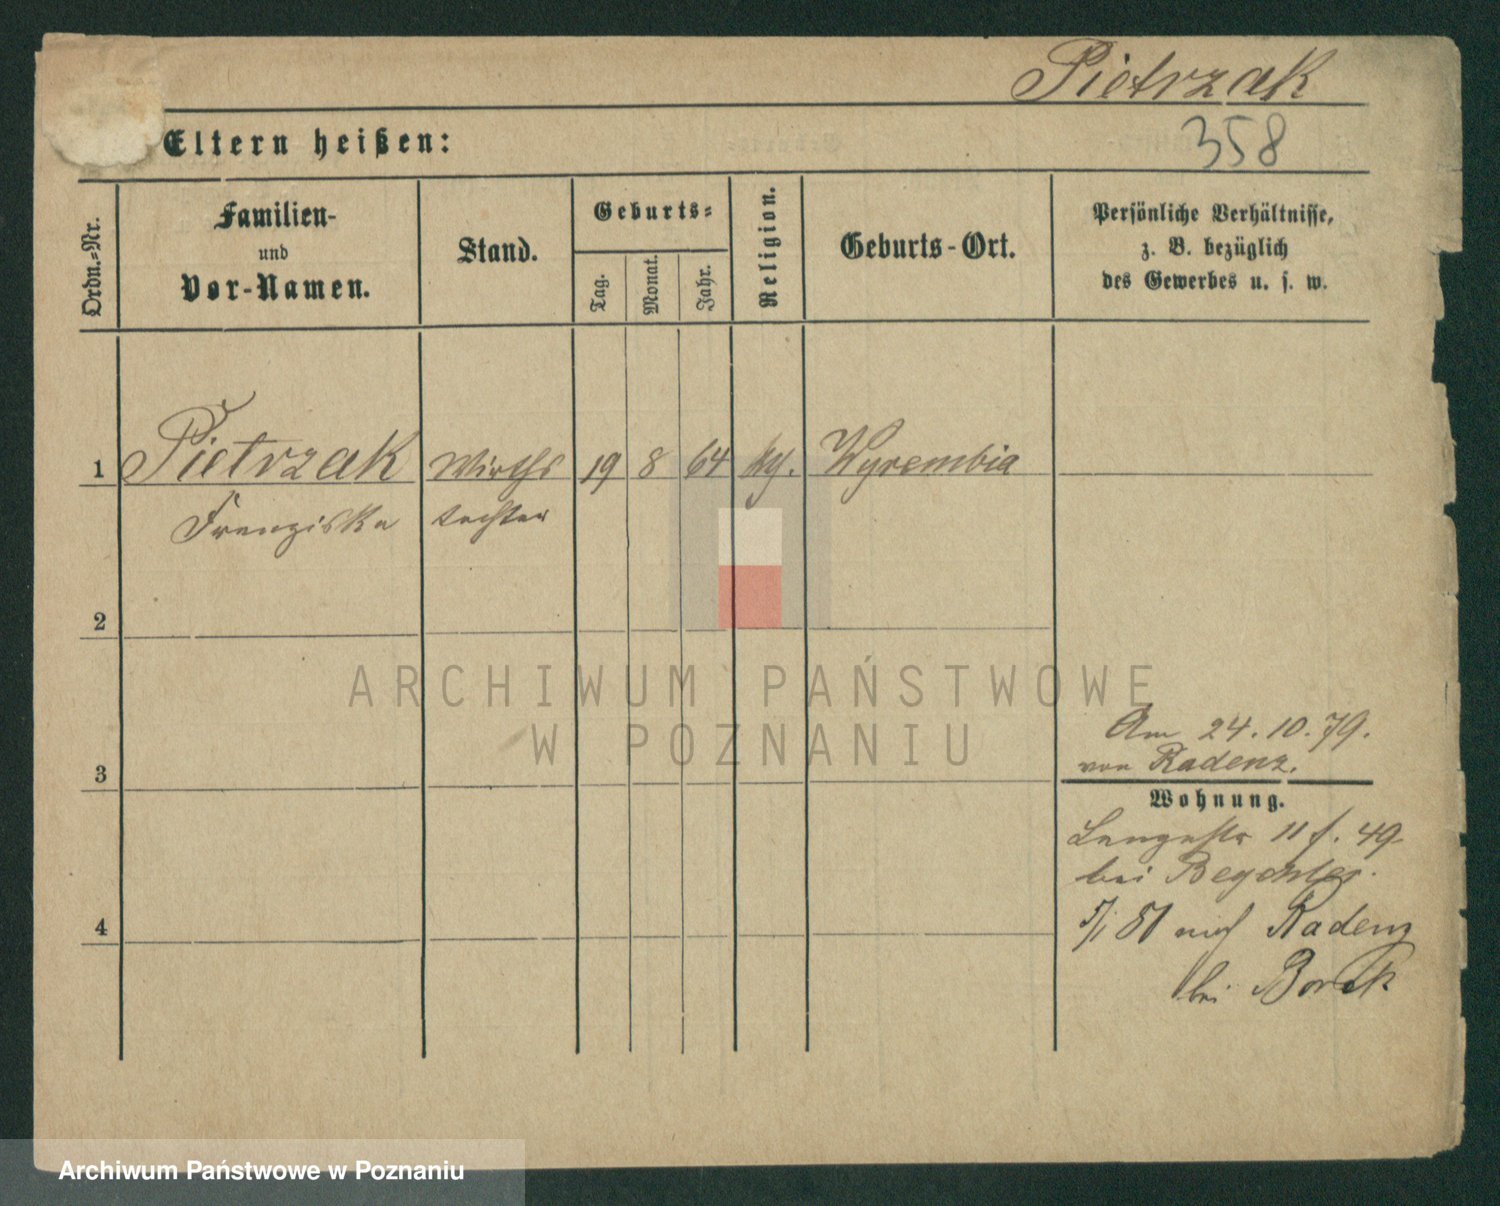 Pietrzak
358
Eltern heißen:
Ordn.-Nr.
Familien-
und
Vor-Namen.
Stand.
Geburts-
Tag.
Monat.
Jahr.
Religion.
Geburts-Ort.
Persönliche Verhältnisse,
z. B. bezüglich
des Gewerbes u. s. w.
1 Pietrzak Wirths 19 8 64 kath. Wyrembia
Franziska tochter
2
3
4
Am 24.10.79.
von Radenz.
Wohnung.
Langestr 11 f. 49
bei
81 nach Radenz
bei Borek
ARCHIWUM PAŃSTWOWE
W POZNANIU
Archiwum Państwowe w Poznaniu